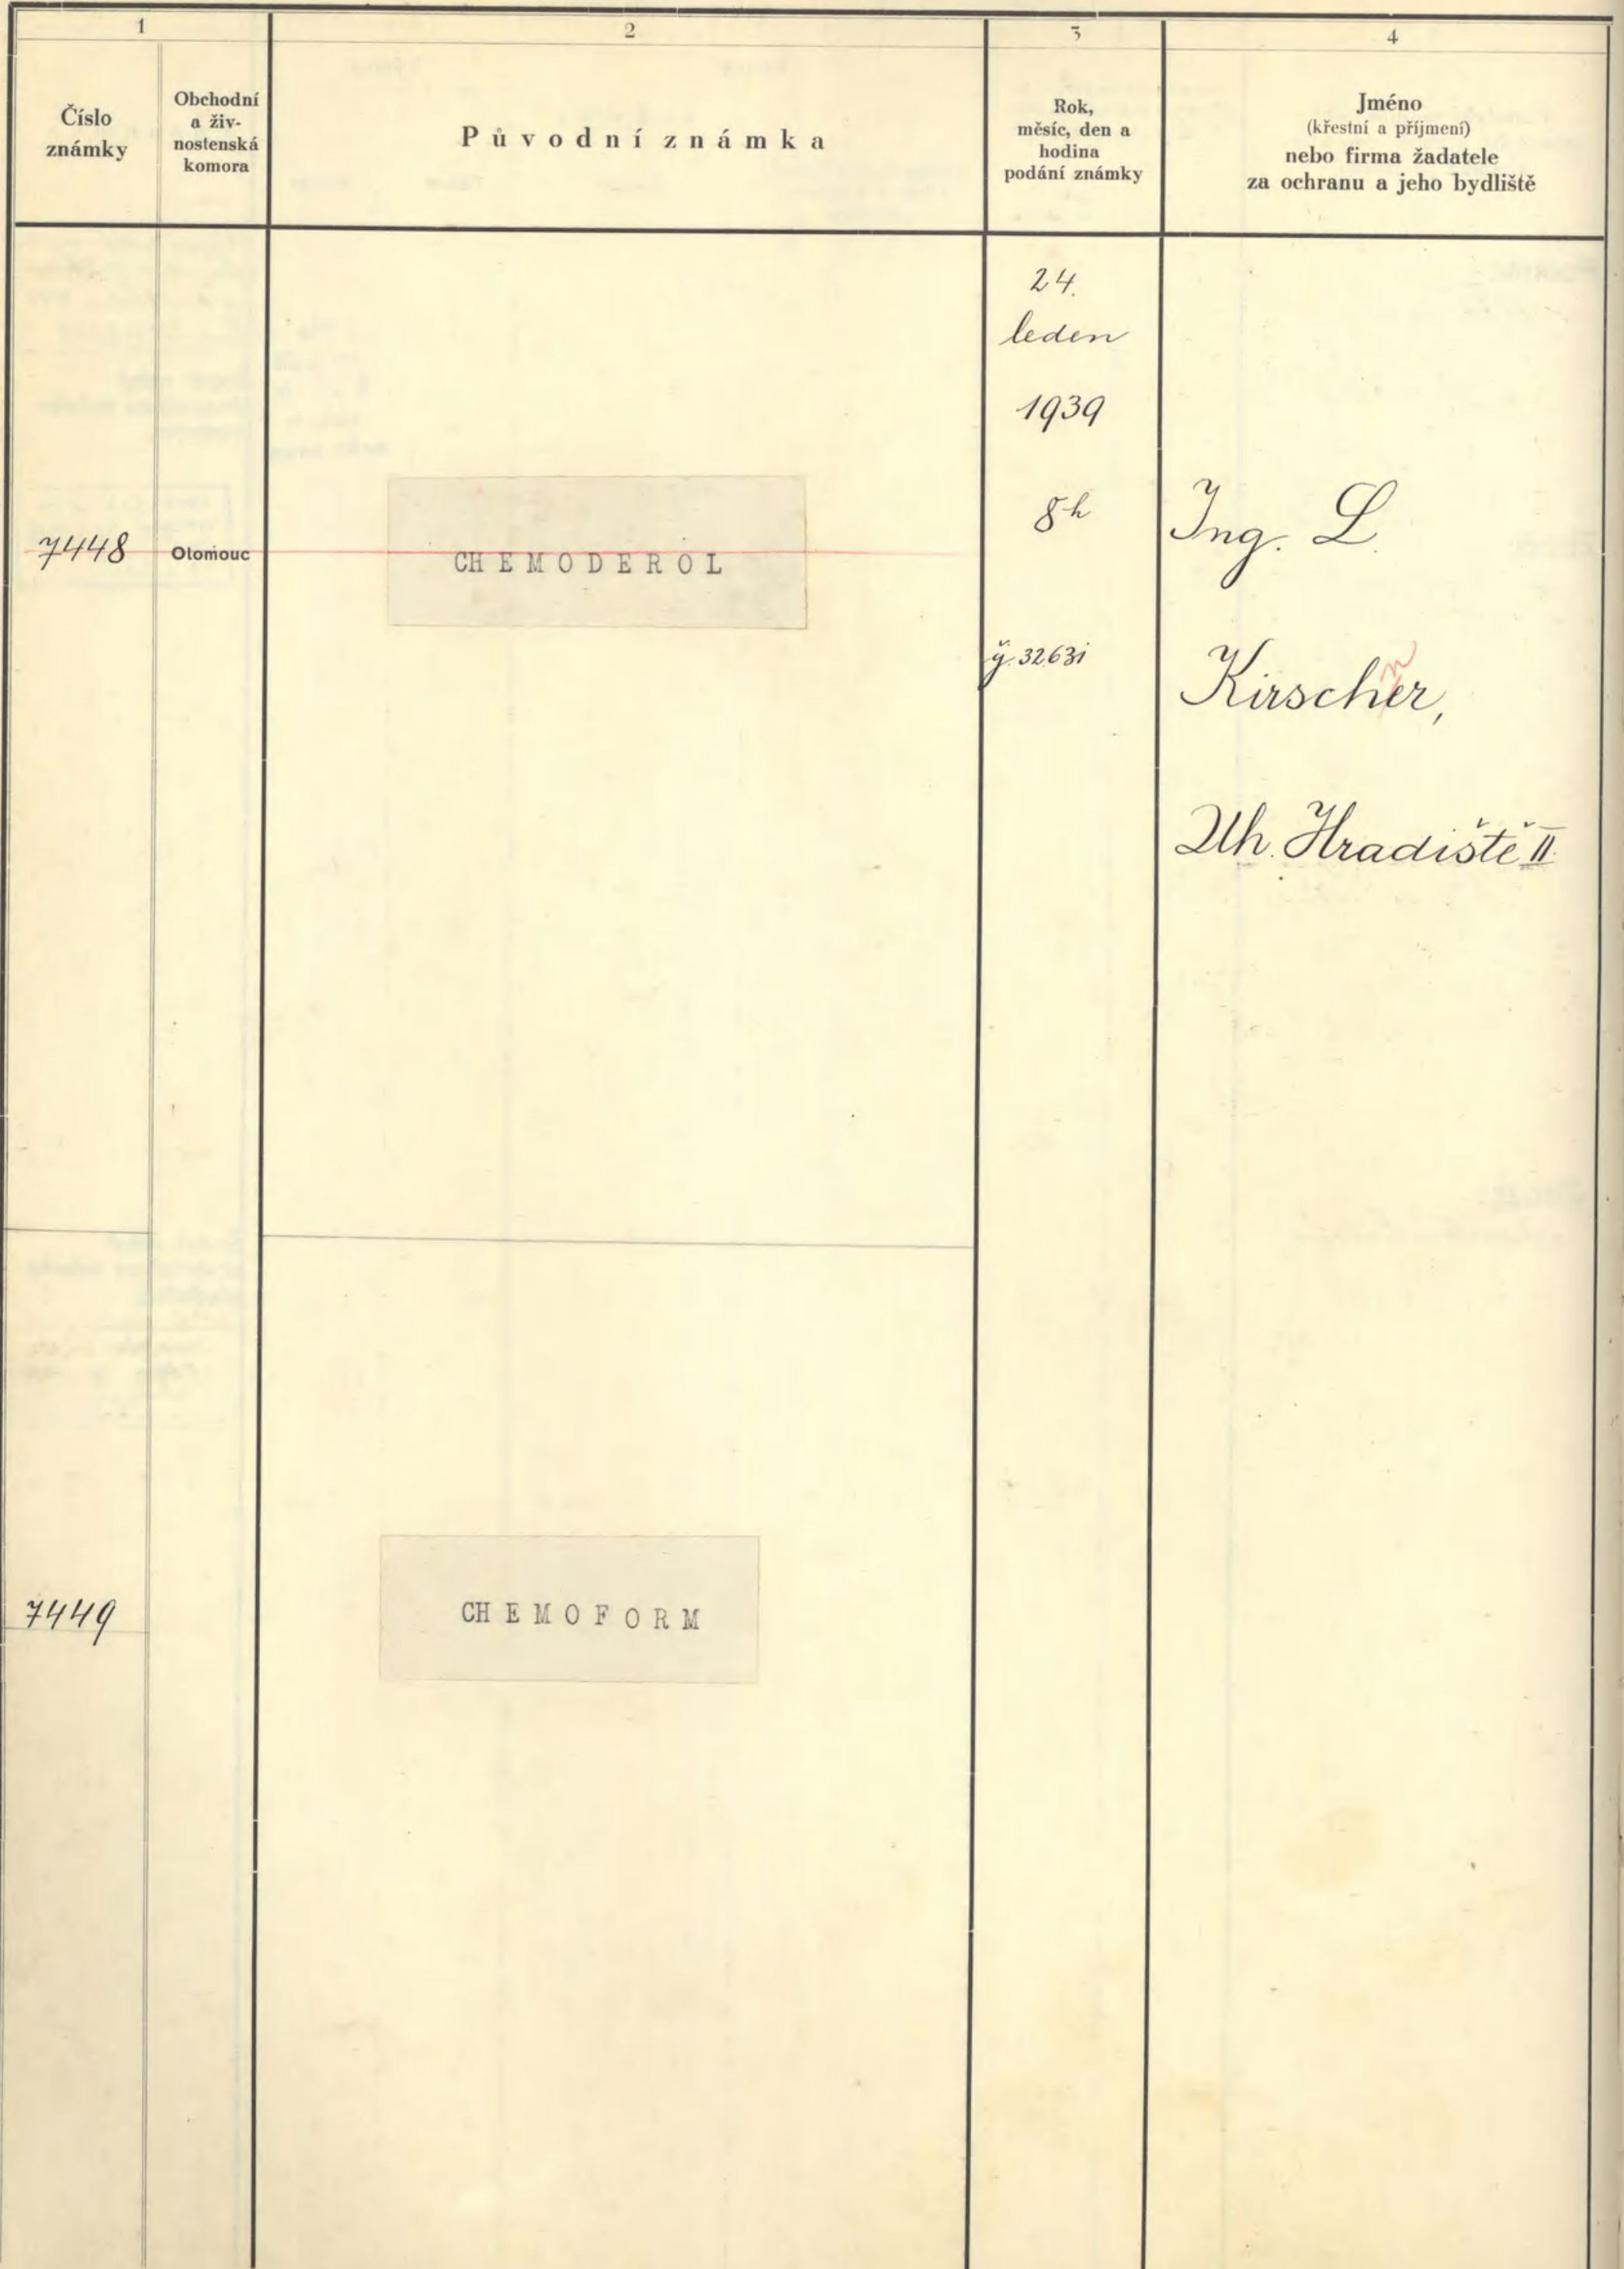 1
2
3
4
Číslo
známky
Obchodní
a živ-
nostenská
komora
Původní známka
Rok,
měsíc, den a
hodina
podání známky
Jméno
(křestní a příjmení)
nebo firma žadatele
za ochranu a jeho bydliště
24.
leden
1939
8h
7448
Olomouc
CHEMODEROL
Ing. L.
32631
Kirschner,
Uh. Hradiště II.
7449
CHEMOFORM